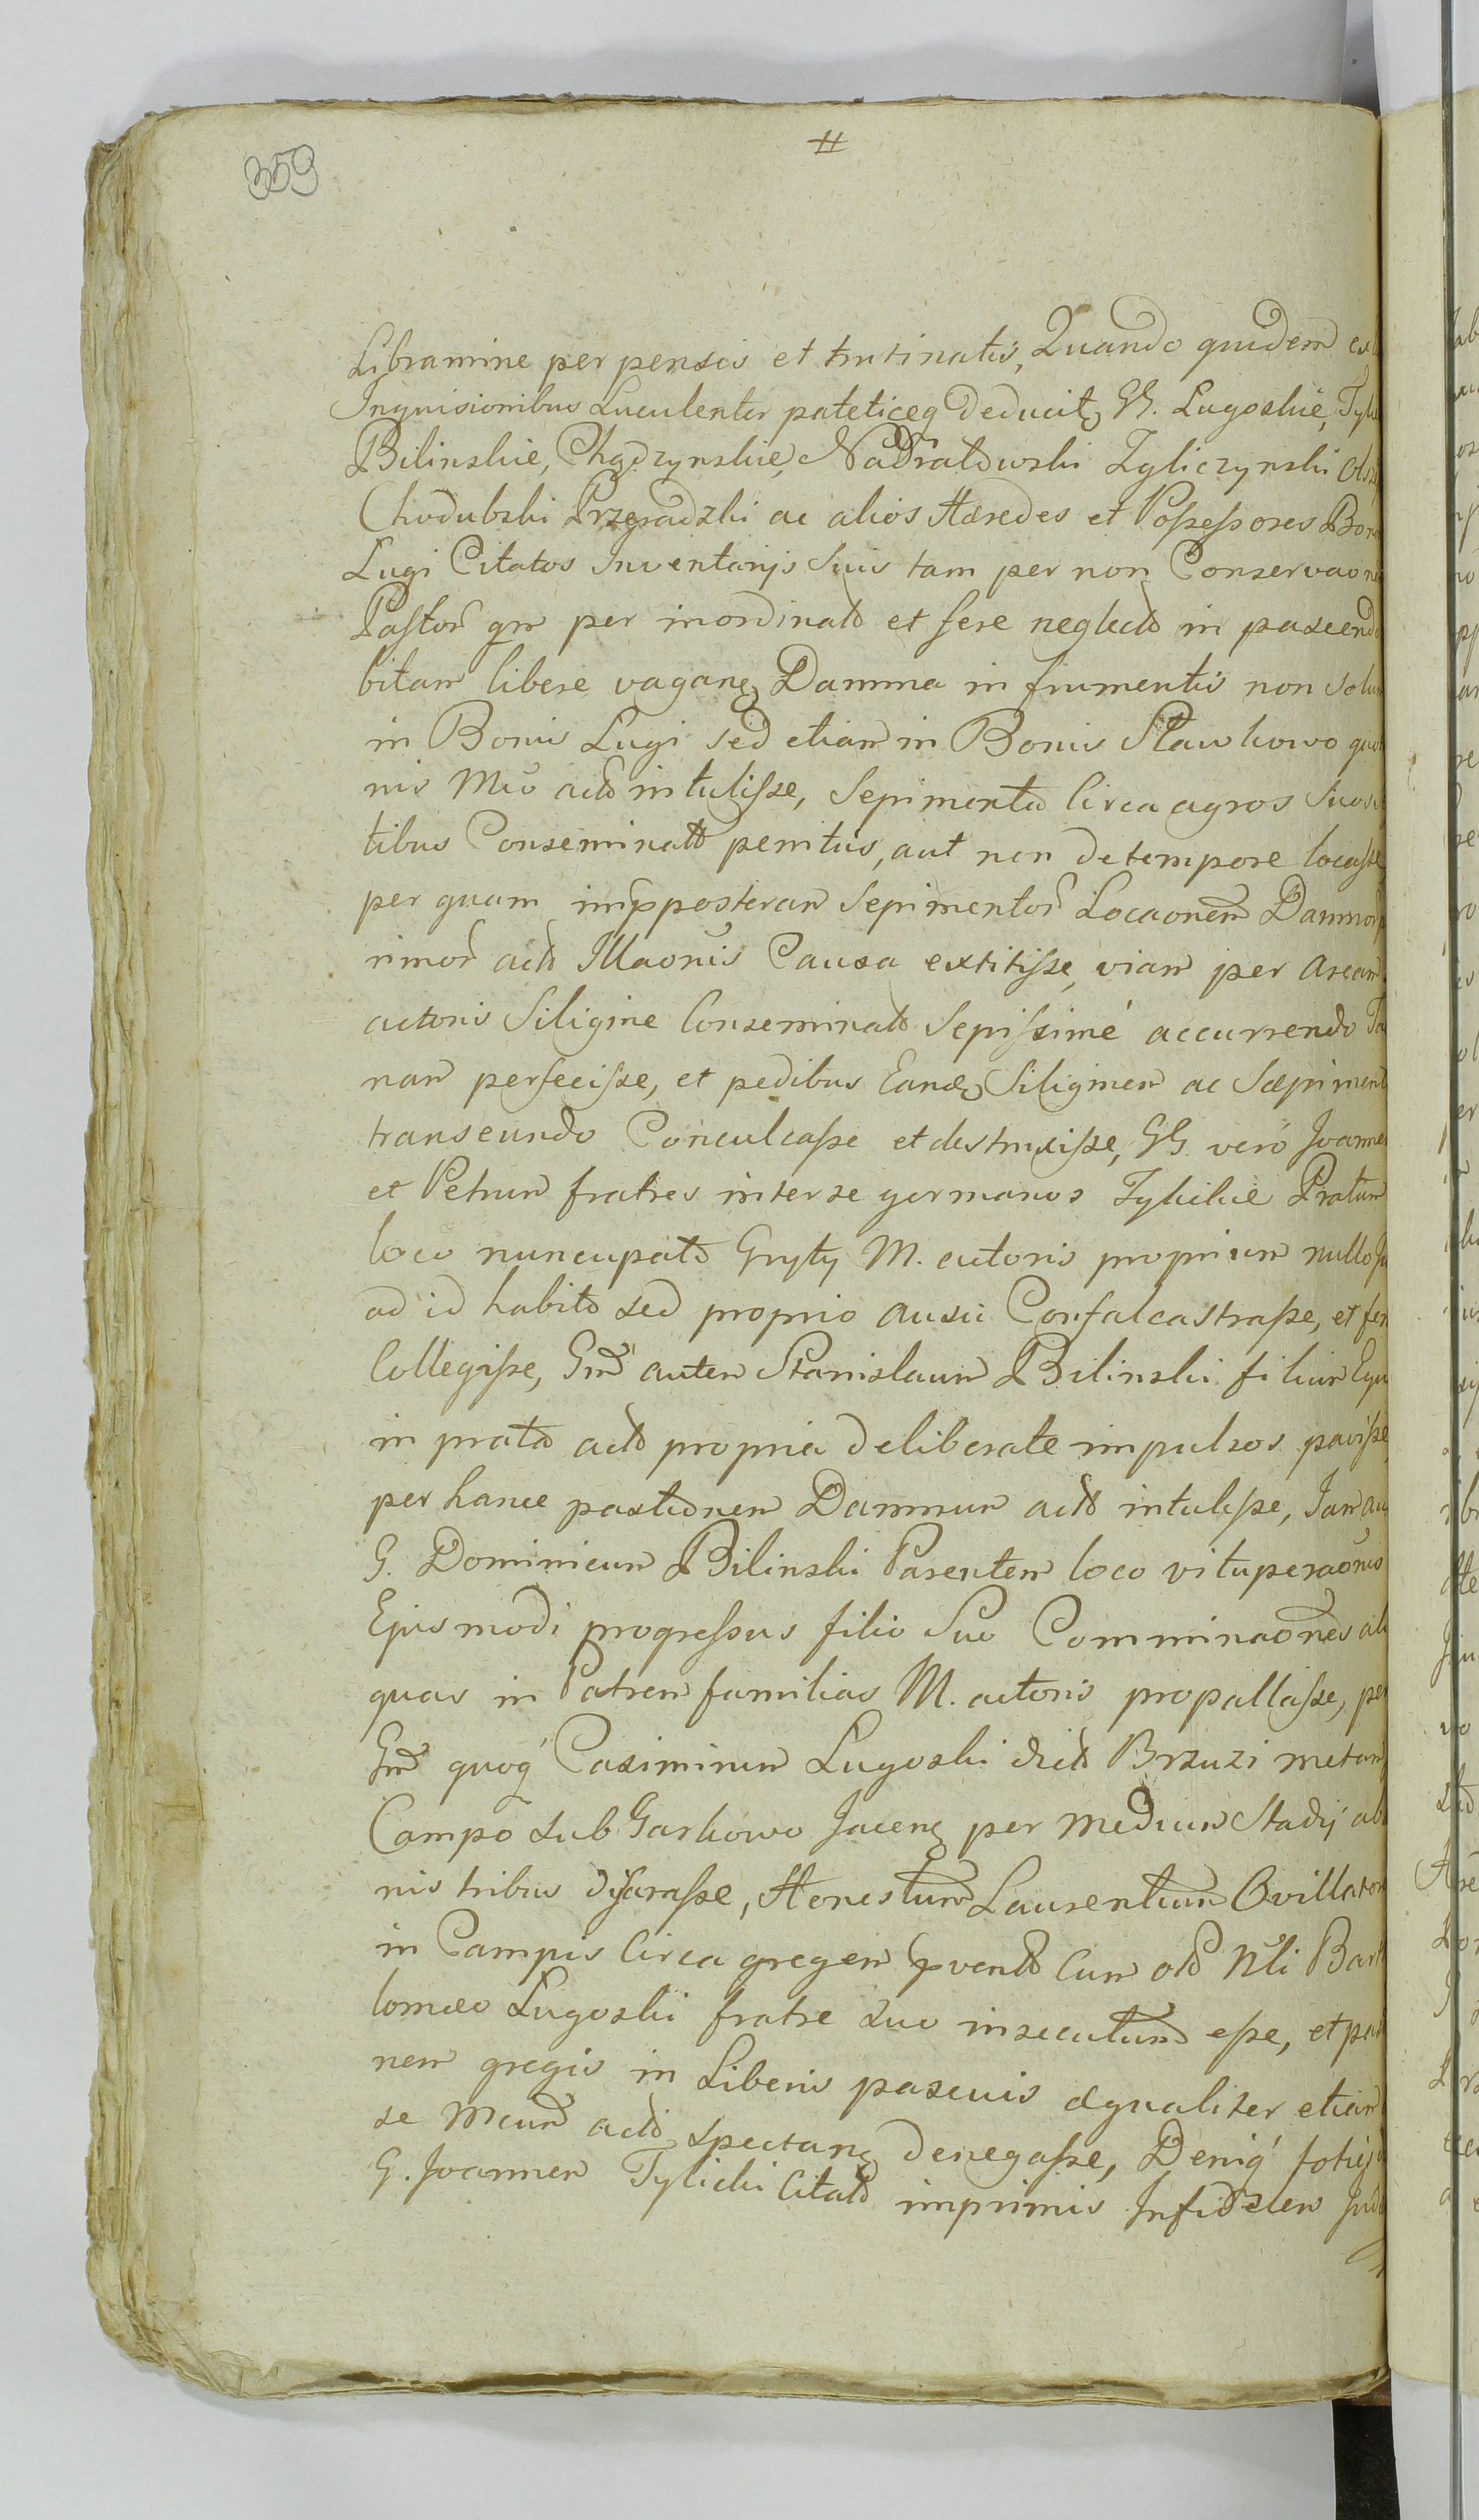 359
#
Libramine perpensis et trutinatis, Quando quidem ex
Inquisionibus Luculenter pateticeq deducit GG. Lugoskie, Tyli
Bilinskie, Chądzynskie, Nadratowski Zyliczynski
Chodubski Przegradzki ac alios Hæredes et Possessores Bon
Lugi Citatos Inventarijs Suis tam per non Conservaone
Pastor qm per inordinato et fere neglecto in pascendo
bitam libere vagane Damna in frumentis non solum
in Bonis Lugi sed etiam in Bonis Sławkowo
nis Mco acto intulisse, Sepimenta Circa agros Suos
tibus Conseminato penitus, aut non de tempore locasse
per quam imposteram Sepimentor Locaonem Damnor
rimor acto Illaonis Causa extitisse, viam per aream
actoris Siligine Conseminato Sepissimé accurrendo
nam perfecisse, et pedibus Eande Siliginem ac Sæpiment
transeundo Conculcasse et destruxisse, GG. vero Joannem
et Petrum fratres inter se germanos Tylickie Pratum
loco nuncupato Gryty M. actoris proprium nullo
ad id habito sed proprio ausu Confalcastrasse, et
Collegisse, Gm autem Stanislaum Bilinski filium Equ
in prata acto propria deliberate impulsos pavisse
per hance pastionem Damnum acto intulisse, Jam
G. Dominicum Bilinski Parentem loco vituperaonis
Ejusmodi progressus filio Suo Comminaones ali
quas in Patrem familias M. actoris propallasse, per
Gm quoq Casimirum Lugoski dicto Brzuzi metam
Campo sub Garkowo Jacene per medium Stadij ab
nis tribus disarasse, Honestum Laurentium Ovillator
in Campis Circa gregem Cum Nli Bart
lomæo Lugoski fratre suo insecutum esse, et
nem gregis in Liberis pascuis æqualiter etiam
se Mcum acto spectane denegasse, Deniq
G. Joannem Tylicki Citato imprimis Jnfidelem